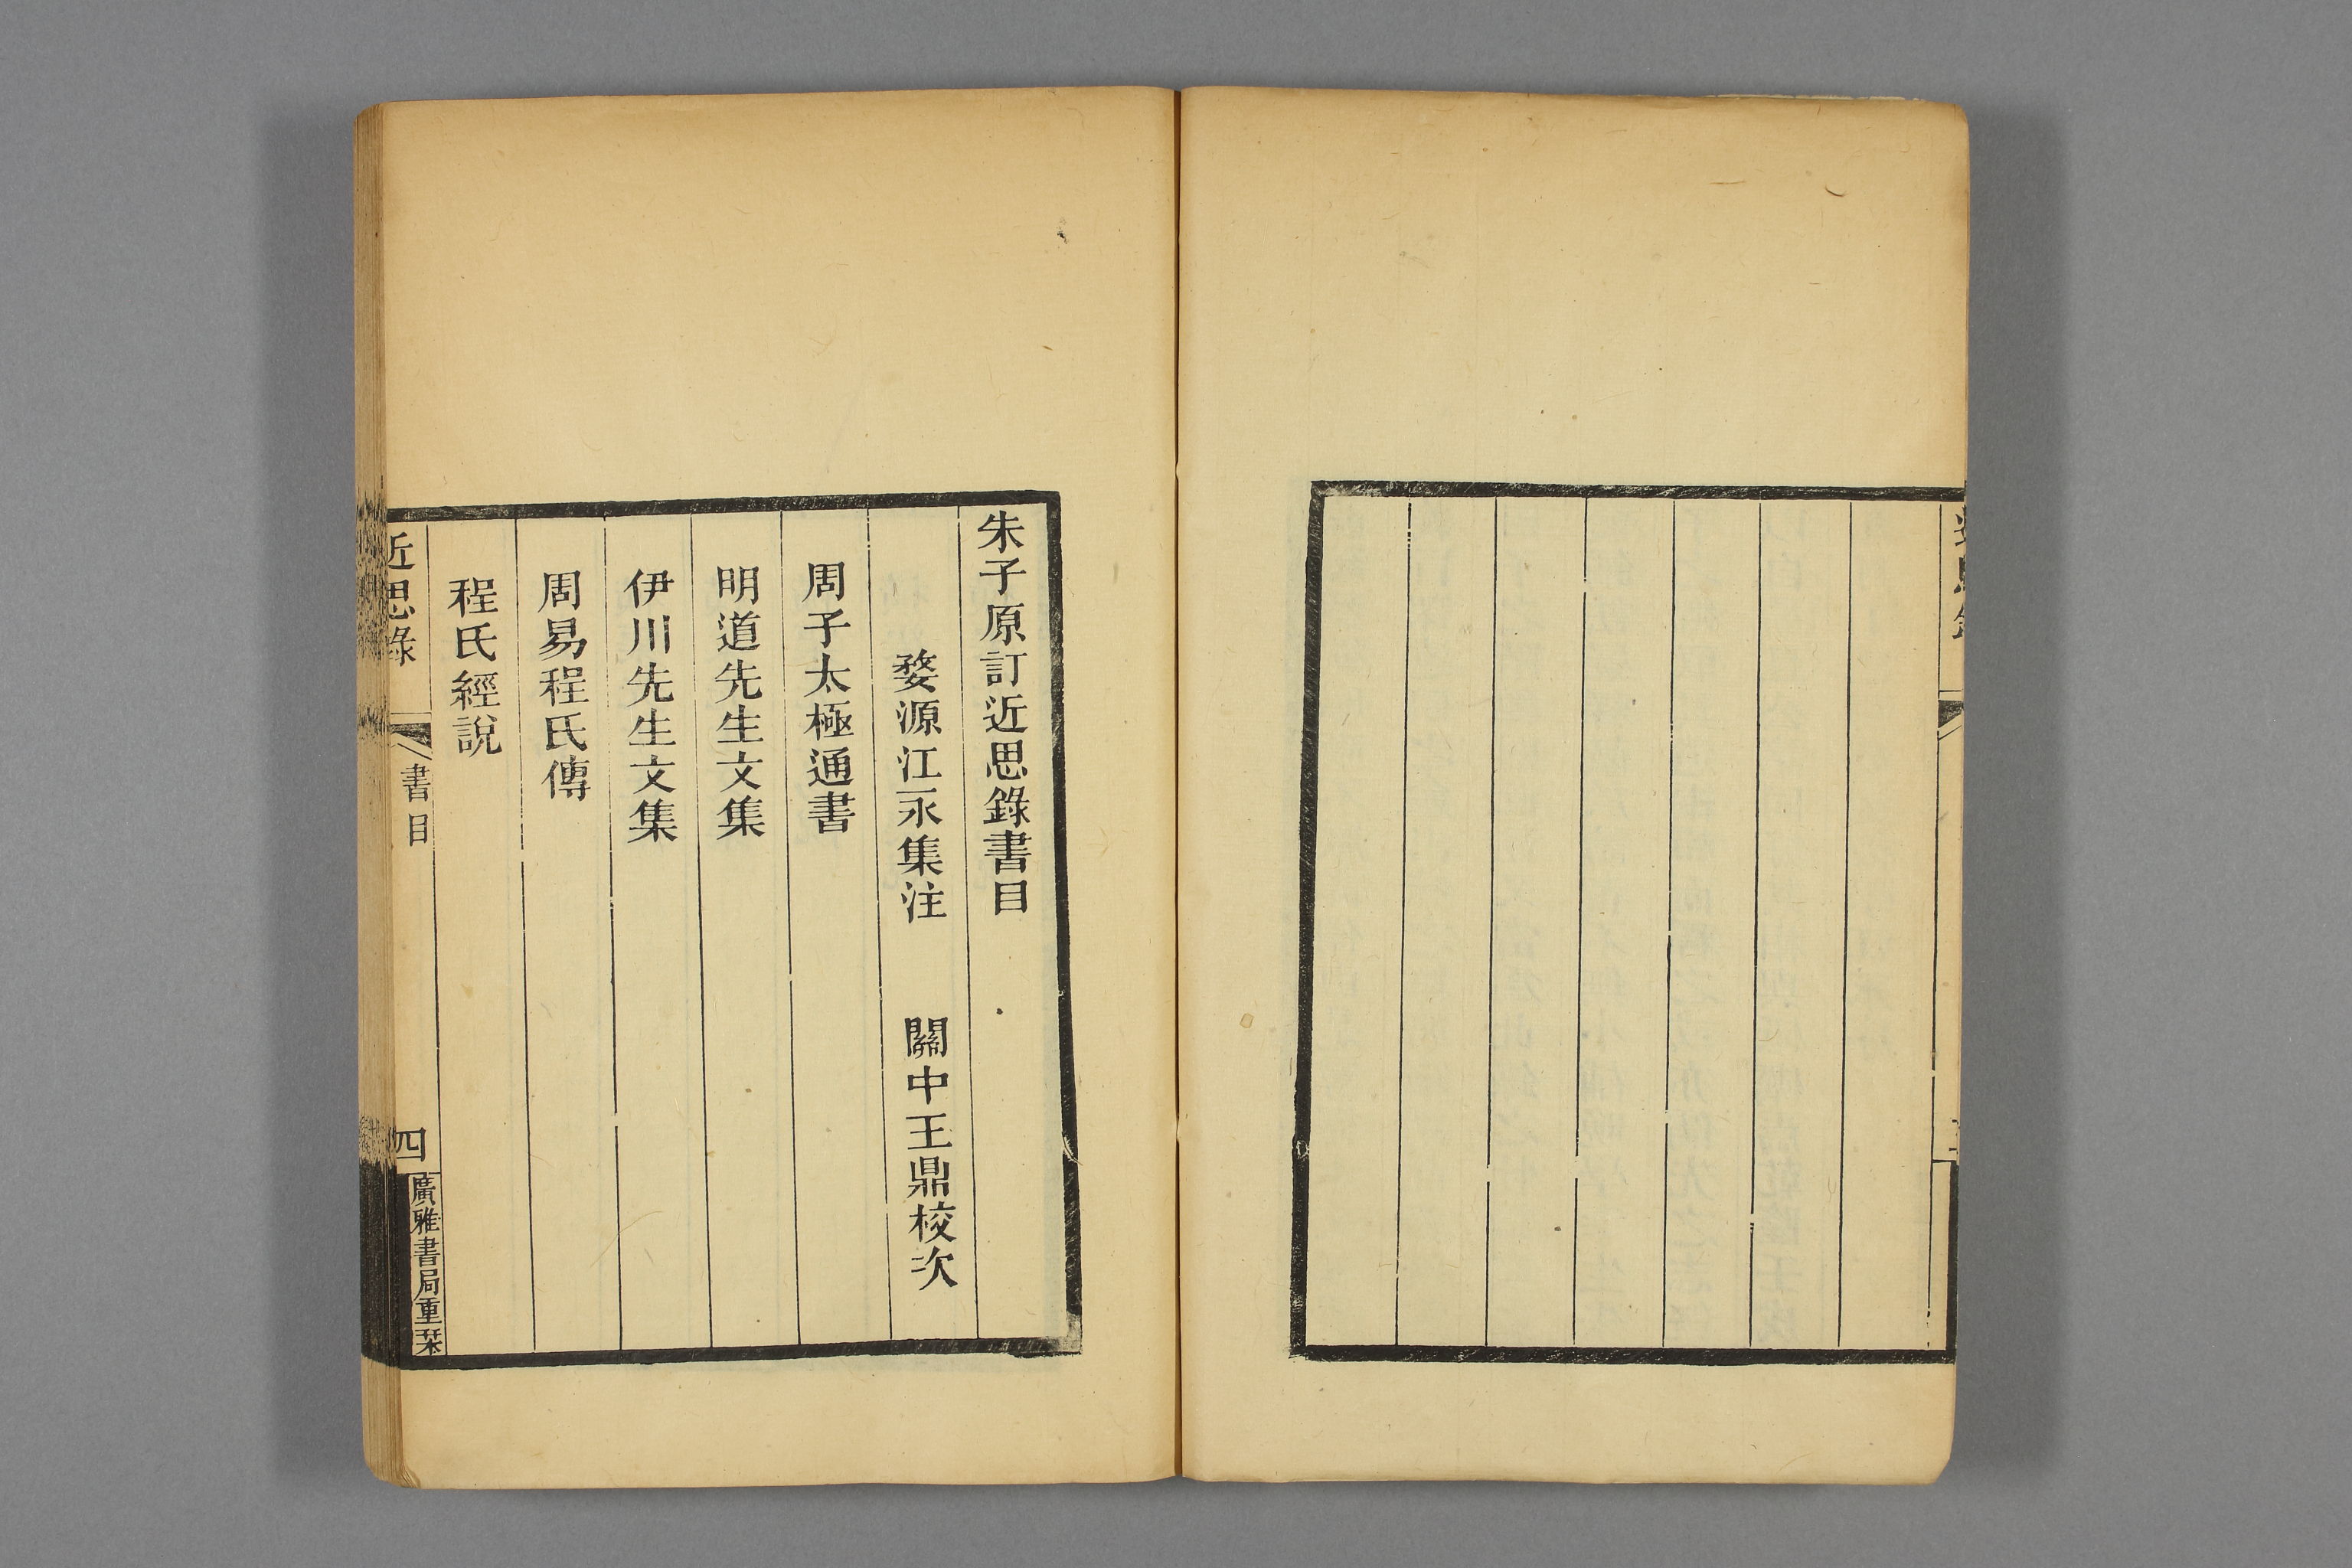 朱子原訂近思錄書目
婺源江永集注　關中王鼎校次
周子太極通書
明道先生文集
伊川先生文集
周易程氏傳
程氏經說
近思錄
書目
四
廣雅書局重栞